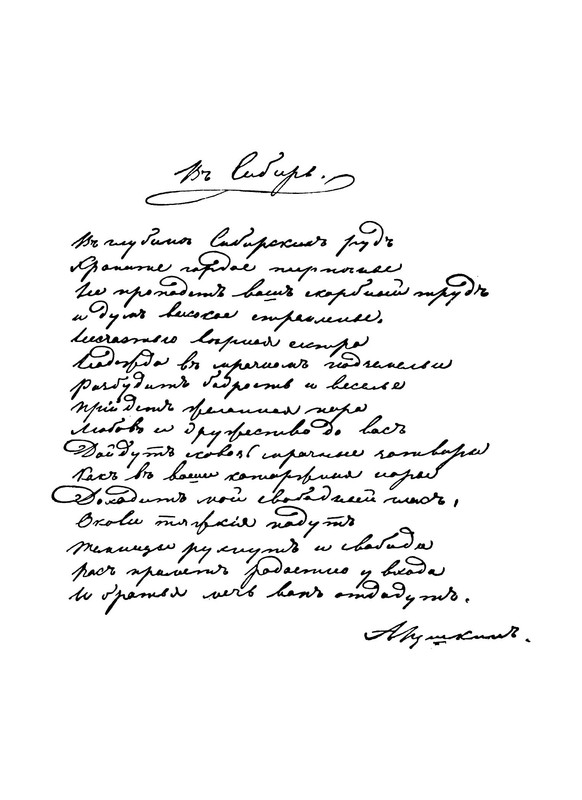 Въ Сибирь.
Въ глубинѣ Сибирскихъ рудъ
Храните гордое терпѣнье
Не пропадетъ вашъ скорбный трудъ
и думъ высокое стремленье.
Несчастью вѣрная сестра
Надежда въ мрачномъ подземельи
Разбудитъ бодрость и веселье
Прійдетъ желанная пора
Любовь и дружество до васъ
Дойдутъ сквозь мрачные затворы
Какъ въ ваши каторжныя норы
Доходитъ мой свободный гласъ,
Оковы тяжкія падутъ
Темницы рухнутъ и свобода
Васъ прiметъ радостно у входа
И братья мечь вамъ отдадутъ.
А Пушкинъ.